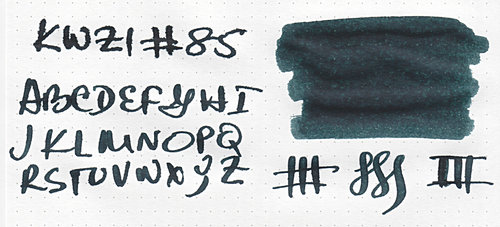 KWZI #85
ABCDEFGHI
JKLMNOPQ
RSTUVWXYZ